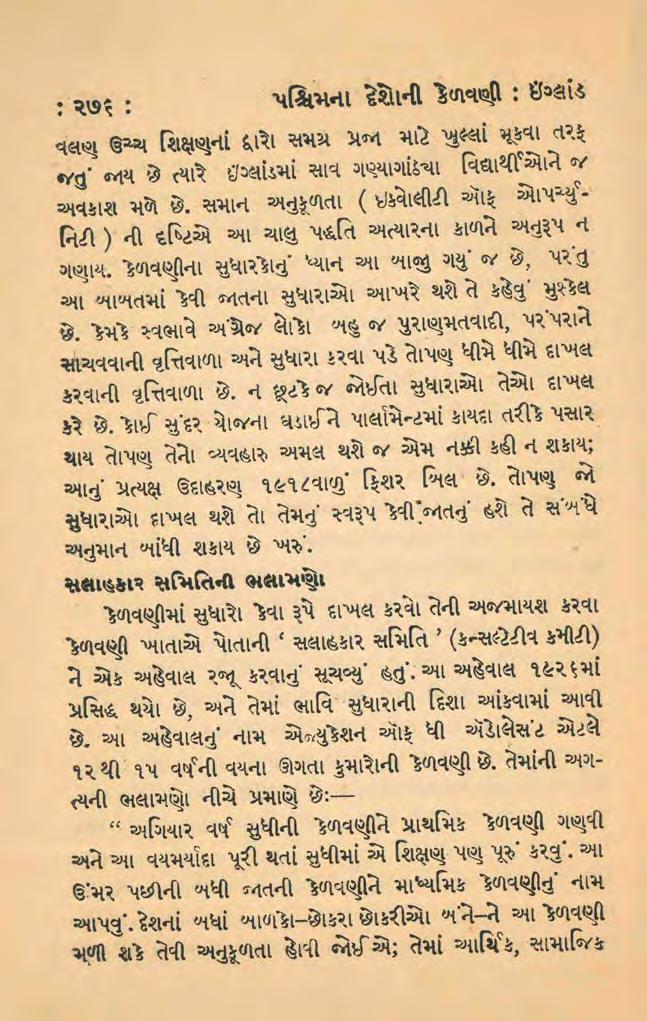 : ૨૭૬ : પશ્ચિમના દેશોની કેળવણી : ઇંગ્લાંડ
વલણ ઉચ્ચ શિક્ષણનાં દ્વારો સમગ્ર પ્રજા માટે ખુલ્લાં મૂકવા તરફ
જતું જાય છે ત્યારે ઇંગ્લાંડમાં સાવ ગણ્યાગાંઠ્યા વિદ્યાર્થીઓને જ
અવકાશ મળે છે. સમાન અનુકૂળતા ( ઇક્વોલીટી ઑફ ઓપર્ચ્યુ-
નિટી ) ની દષ્ટિએ આ ચાલુ પદ્ધતિ અત્યારના કાળને અનુરૂપ ન
ગણાય. કેળવણીના સુધારકોનું ધ્યાન આ બાજુ ગયું જ છે, પરંતુ
આ બાબતમાં કેવી જાતના સુધારાઓ આખરે થશે તે કહેવું મુશ્કેલ
છે. કેમકે સ્વભાવે અંગ્રેજ લોકો બહુ જ પુરાણમતવાદી, પરંપરાને
સાચવવાની વૃત્તિવાળા અને સુધારા કરવા પડે તોપણ ધીમે ધીમે દાખલ
કરવાની વૃત્તિવાળા છે. ન છૂટકે જ જોઈતા સુધારાઓ તેઓ દાખલ
કરે છે. કોઈ સુંદર યોજના ઘડાઈને પાર્લામેન્ટમાં કાયદા તરીકે પસાર
થાય તોપણ તેનો વ્યવહારુ અમલ થશે જ એમ નક્કી કહી ન શકાય;
આનું પ્રત્યક્ષ ઉદાહરણ ૧૯૧૮વાળું ફિશર બિલ છે. તોપણ જો
સુધારાઓ દાખલ થશે તો તેમનું સ્વરૂપ કેવી જાતનું હશે તે સંબંધે
અનુમાન બાંધી શકાય છે ખરું.
સલાહકાર સમિતિની ભલામણો
કેળવણીમાં સુધારો કેવા રૂપે દાખલ કરવો તેની અજમાયશ કરવા
કેળવણી ખાતાએ પોતાની ‘ સલાહકાર સમિતિ ’ (કન્સલ્ટેટીવ કમીટી)
ને એક અહેવાલ રજૂ કરવાનું સૂચવ્યું હતું. આ અહેવાલ ૧૯૨૬માં
પ્રસિદ્ધ થયો છે, અને તેમાં ભાવિ સુધારાની દિશા આંકવામાં આવી
છે. આ અહેવાલનું નામ એજ્યુકેશન ઑફ ધી ઍડોલેસંટ એટલે
૧૨ થી ૧૫ વર્ષની વયના ઊગતા કુમારોની કેળવણી છે. તેમાંની અગ-
ત્યની ભલામણો નીચે પ્રમાણે છેઃ—
“ અગિયાર વર્ષ સુધીની કેળવણીને પ્રાથમિક કેળવણી ગણવી
અને આ વયમર્યાદા પૂરી થતાં સુધીમાં એ શિક્ષણ પણ પૂરું કરવું. આ
ઉંમર પછીની બધી જાતની કેળવણીને માધ્યમિક કેળવણીનું નામ
આપવું. દેશનાં બધાં બાળકો–છોકરા છોકરીઓ બંને–ને આ કેળવણી
મળી શકે તેવી અનુકૂળતા હોવી જોઈએ; તેમાં આર્થિક, સામાજિક